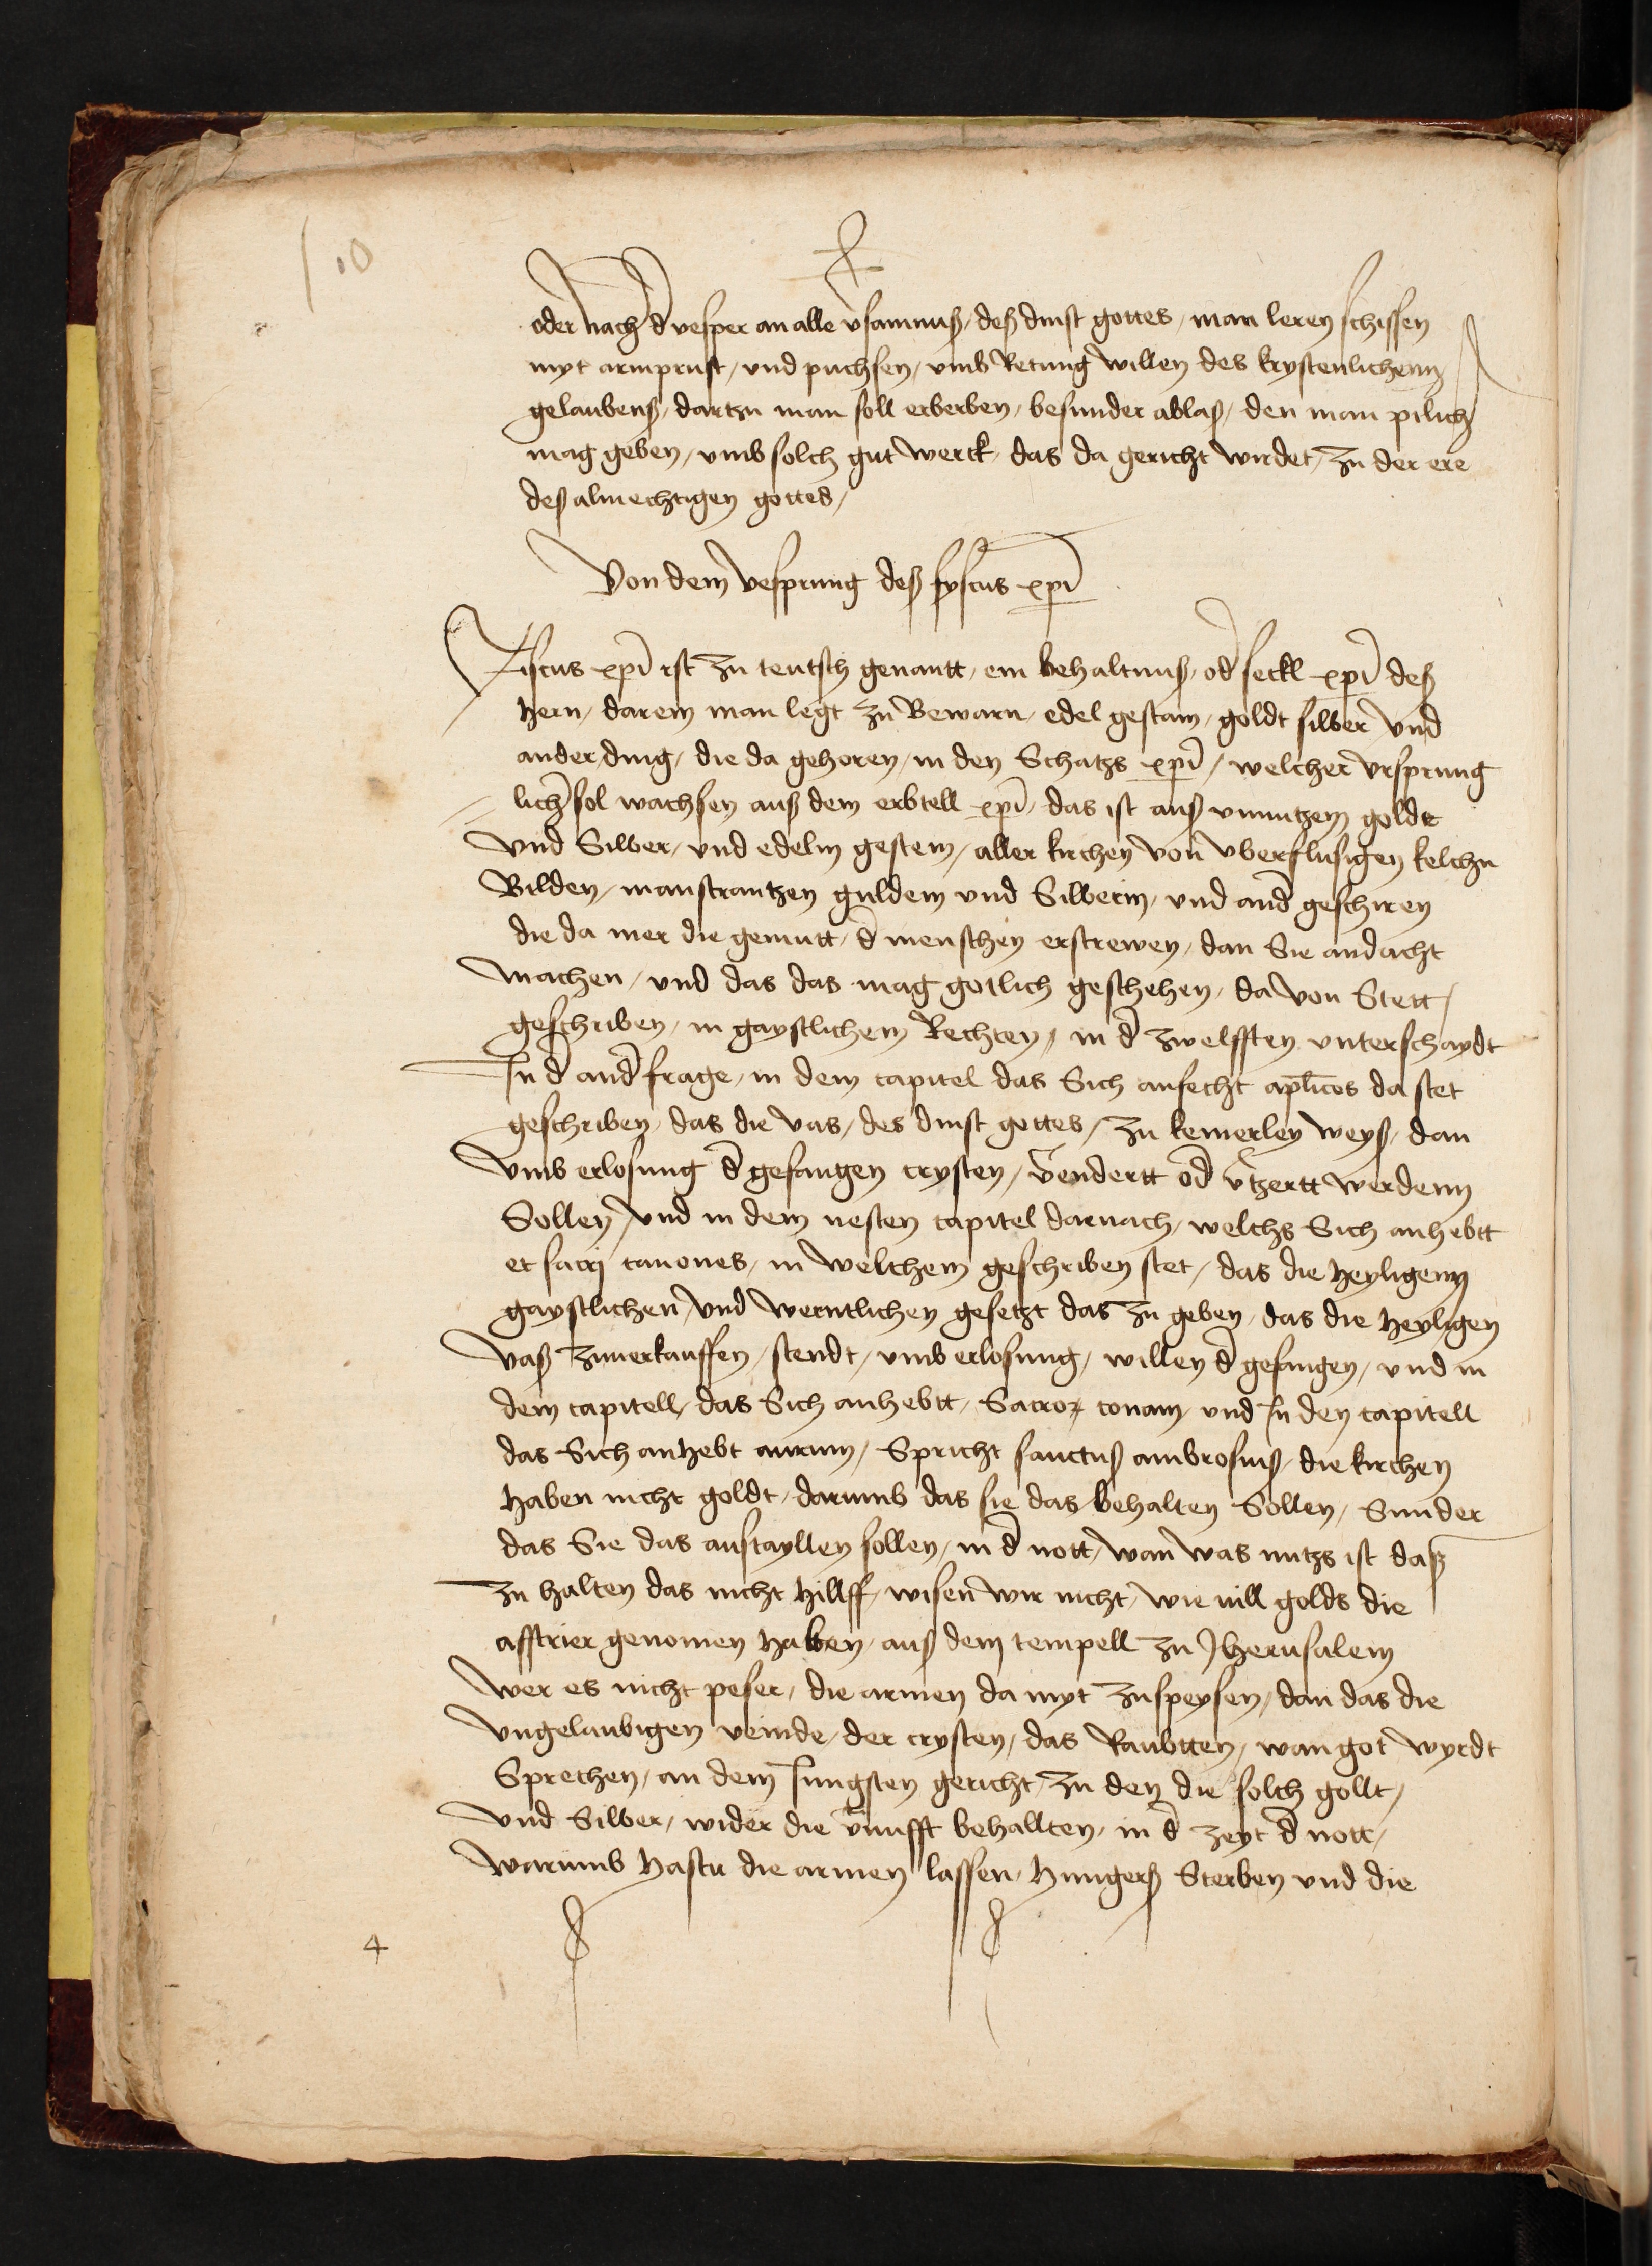 10
oder nach d̄ vesper an alle v̄samnuß, deß dinst gottes, man leren schissen
myt armprust, und puchsen, umb Retung willen des krystenlichenn
gelaubens, dartzu man soll erberben, besunder ablaß, den man pilich
mag geben, umb solch gut werck, das da gericht wirdet, zu der ere
deß almechtigen gottes,
Von dem Vrsprung deß fyscus xp̄i
Fiscus xp̄i ist zu teutsch genantt, ein behaltnuß, od̄ seckl xp̄i deß
hern, darein man legt zu Bewarn, edel gestain, goldt silber und
ander ding, die da gehoren, in den Schatzs xp̄i, welcher ursprung
lich sol wachsen auß dem erbtell xp̄i, das ist auß unnutzem goldt
und Silber, und edelm gestein, aller kirchen von uberflusigen kelchn
Bilden, manstrantzen guldein und Silberin, und and̄ geschiren
die da mer die gemutt, d̄ menschen erstrewen, dan Sie andacht
machen, und das das mag gotlich geschehen, da von Stett,
geschriben, in gaystlichem Rechten, in d̄ zwelfften unterschaydt
In d̄ and̄ frage, in dem capitel das Sich anfecht ap̄licos da stet
geschriben, das die vas, des dinst gottes, zu keinerley weyß, dan
umb erlosung d̄ gefangen crysten, v̄endertt od̄ v̄tzertt werdenn
Sollen, und in dem nesten capitel darnach, welchs Sich anhebtt
et sacrj canones, in welchem geschriben stet, das die heyligenn
gaystlichen, und werntlichen gesetzt das zu geben, das die heyligen
vaß zuuerkauffen, stendt, umb erlosung, willen d̄ gefangen, und in
dem capitell, das Sich anhebtt, Sacroꝝ conam, und In den capitell
das Sich anhebt aurum, Spricht sanctus ambrosius, die kirchen
haben nicht goldt, darumb das sie das behalten Sollen, Sunder
das Sie das austayllen sollen, in d̄ nott, wan was nutzs ist daß
zu halten das nicht hillff, wisen wir nicht, wie vill golds die
assirier genomen haben, auß dem tempell zu Jherusalem
wer es nicht peser, die armen da myt zu speysen, dan das die
ungelaubigen veinde, der crysten, das Raubtten, wan got wyrdt
Sprechen, an dem Jungsten gericht, zu den die solch gollt,
und Silber, wider die v̄nufft behallten, in d̄ zeyt d̄ nott,
warumb hastu die armen lassen, hungerß Sterben und die
4